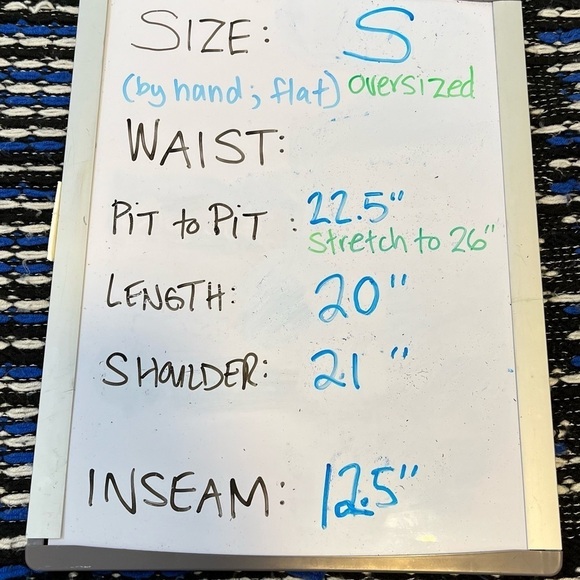 SIZE: S
(by hand; flat) oversized
WAIST:
PiT to PiT : 22.5"
stretch to 26"
LENGTH: 20"
SHOULDER: 21"
INSEAM: 12.5"